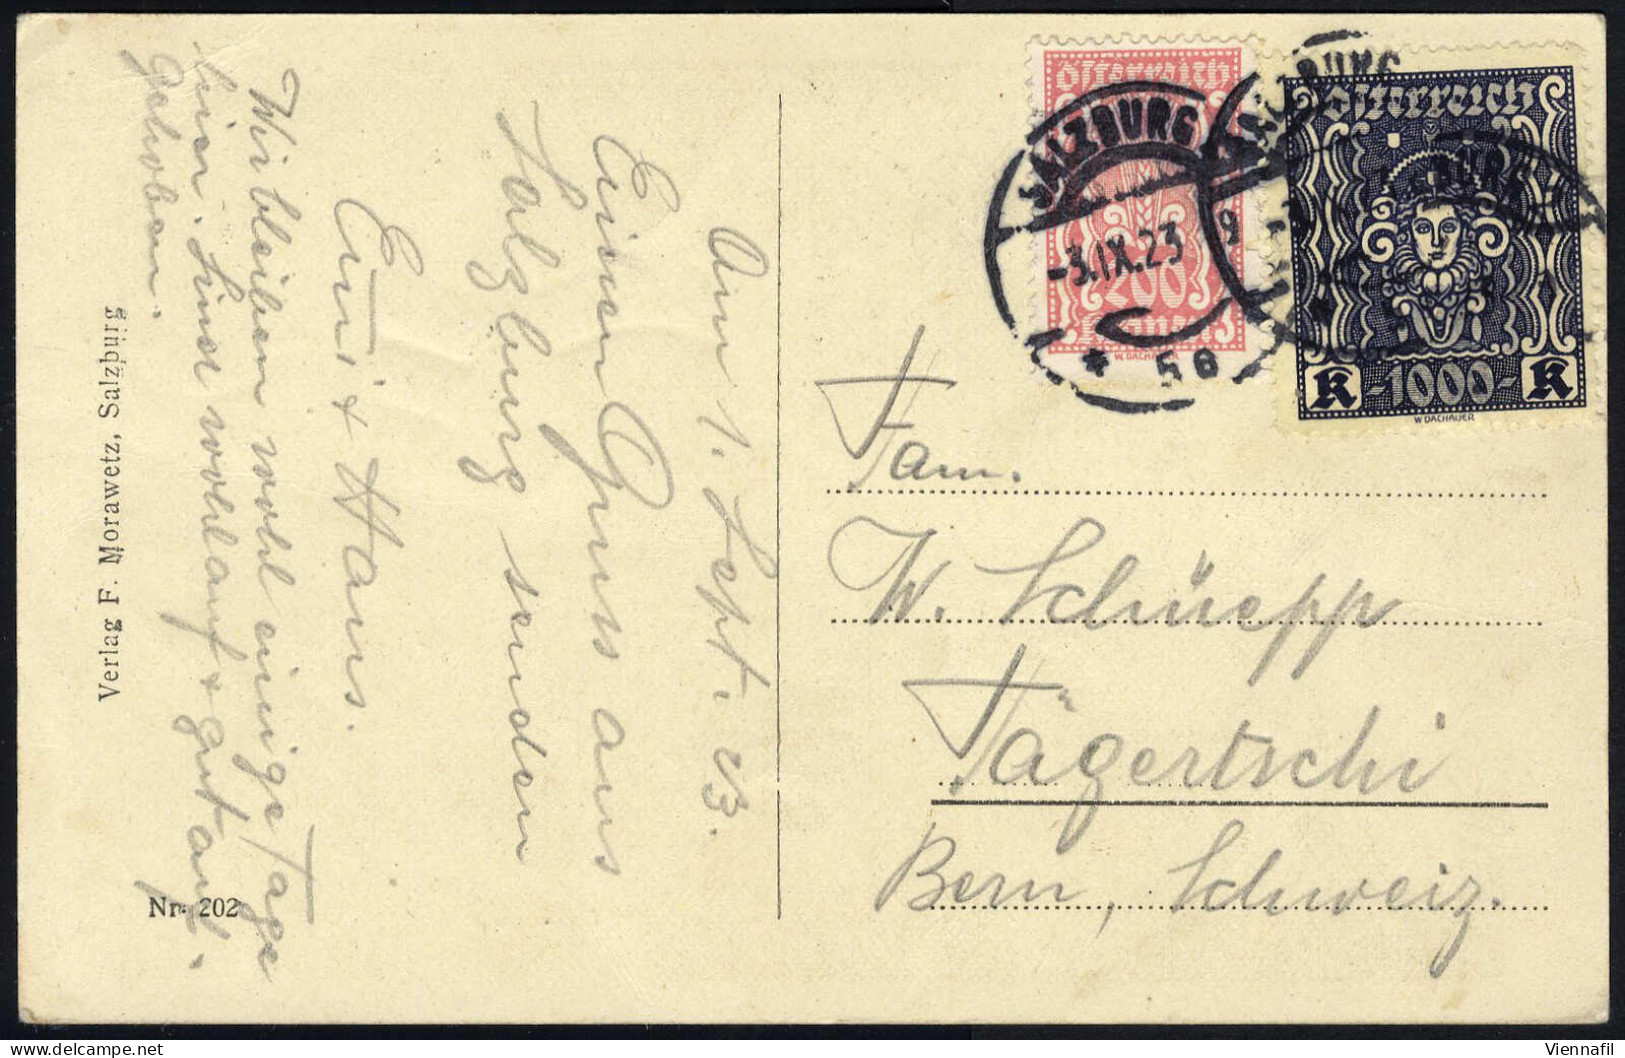 Am 1. Sept. 23.
Einen Gruss aus
Salzburg senden
& Hans.
Wir bleiben wohl einige Tage
hier. Sind wohlauf & gut auf-
gehoben.
Verlag F. Morawetz, Salzburg
Nr. 202
Österreich
200
Kronen
W. DACHAUER
SALZBURG
-3.IX.23
* 5e
SALZBURG
9
Österreich
K -1000- K
W. DACHAUER
Fam.
W. Schüepp
Tägertschi
Bern, Schweiz.
Viennafil